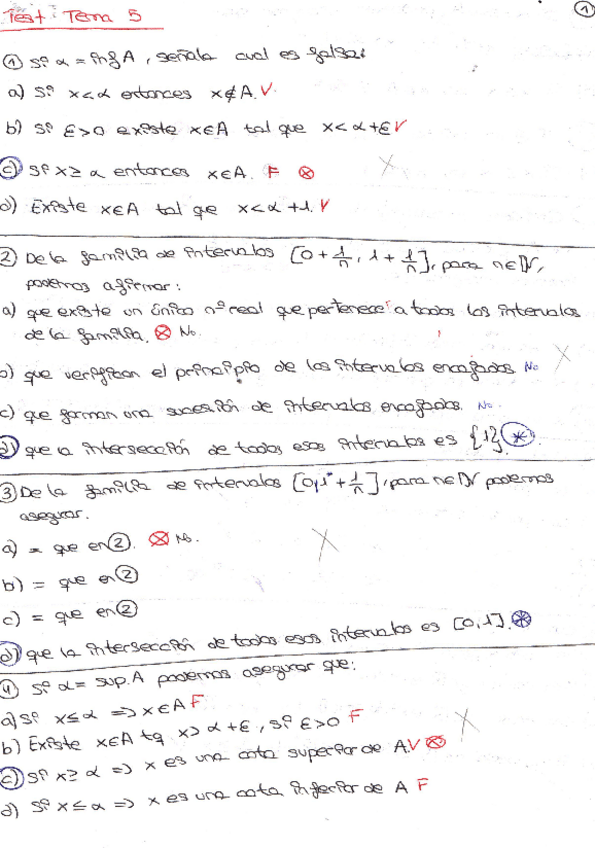 Test Tema 5
1
① Si α = inf A, señala cual es falsa:
a) Si x<α entonces x∉A. V
b) Si ε>0 existe x∈A tal que x<α+ε V
c) Si x≥α entonces x∈A. F ⊗
d) Existe x∈A tal que x<α+1. V
② De la familia de intervalos [0+1/n, 1+1/n], para n∈ℕ,
podemos afirmar:
a) que existe un único nº real que pertenece a todos los intervalos
de la familia. ⊗ No.
b) que verifican el principio de los intervalos encajados No
c) que forman una sucesión de intervalos encajados. No.
d) que la intersección de todos esos intervalos es {1}. ⊛
③ De la familia de intervalos [0,1+1/n], para n∈ℕ podemos
asegurar.
a) = que en ②. ⊗ No.
b) = que en ②
c) = que en ②
d) que la intersección de todos esos intervalos es [0,1]. ⊛
④ Si α = sup.A podemos asegurar que:
a) Si x≤α => x∈A F
b) Existe x∈A tq x>α+ε, si ε>0 F
c) Si x≥α => x es una cota superior de A. V ⊗
d) Si x≤α => x es una cota inferior de A F